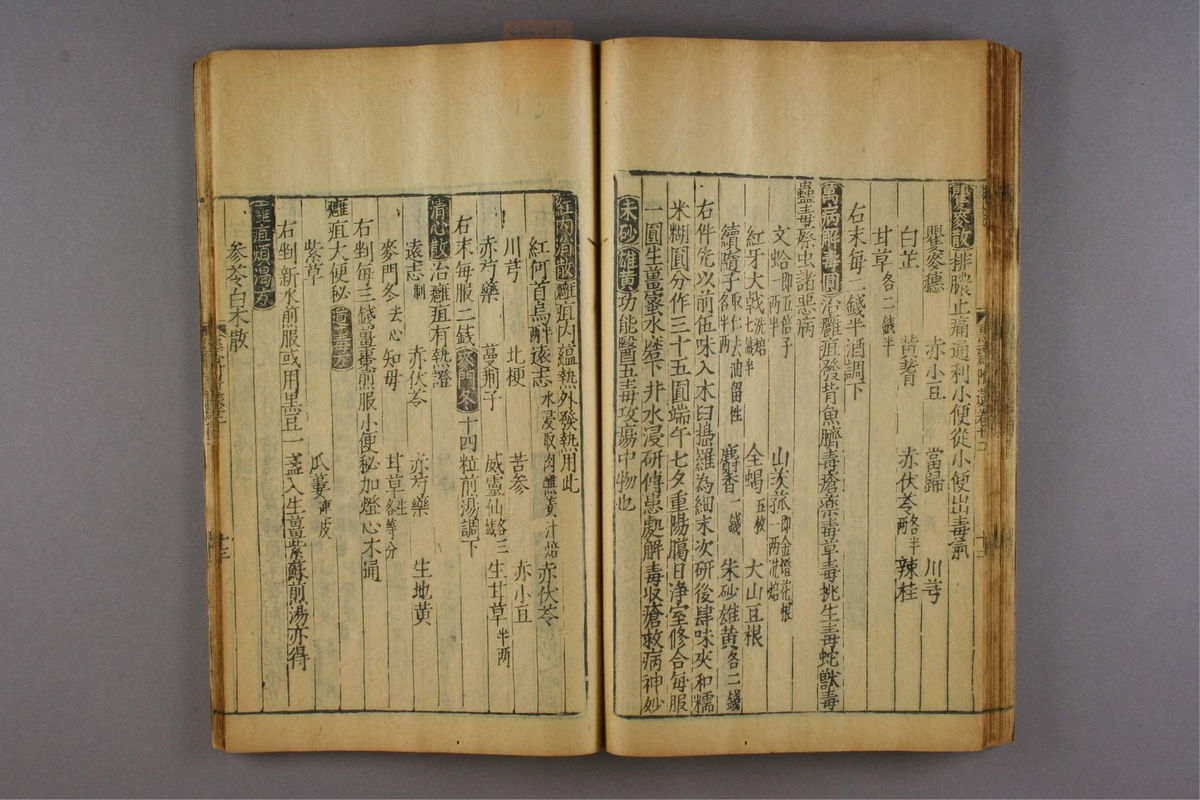 瞿麥散排膿止痛通利小便從小便出毒氣
瞿麥穗 赤小豆 當歸 川芎
白芷 黃耆 赤伏苓各半兩 辣桂
甘草各二錢半
右末每二錢半酒調下
萬病解毒圓治癰疽發背魚臍毒瘡藥毒草毒挑生毒蛇獸毒
蠱毒瘵虫諸惡病
文蛤即五倍子一兩半 山茨菰即金燈花根一兩洗焙
紅牙大戟洗焙七錢半 全蝎五枚 大山豆根
續隨子取仁去油留性各半兩 麝香一錢 朱砂雄黃各二錢
右件先以前伍味入木臼擣羅為細末次研後肆味夾和糯
米糊圓分作三十五圓端午七夕重陽臘日淨室修合每服
一圓生薑蜜水磨下井水浸研傅患處解毒收瘡救病神妙
朱砂雄黃功能醫五毒攻瘍中物也
紅內消散癰疽內蘊熱外發熱用此
紅何首烏半兩 遠志水浸取肉醮姜汁焙 赤伏苓
川芎 北梗 苦參 赤小豆
赤芍藥 蔓荊子 威靈仙各三錢 生甘草半兩
右末每服二錢麥門冬十四粒煎湯調下
清心散治癰疽有熱證
遠志制 赤伏苓 赤芍藥 生地黃
麥門冬去心 知母 甘草生各等分
右剉每三錢薑棗煎服小便秘加燈心木通
癰疽大便秘道毒方
紫草 瓜蔞連皮
右剉新水煎服或用黑豆一盞入生薑紫蘇煎湯亦得
癰疽煩渴方
參苓白朮散